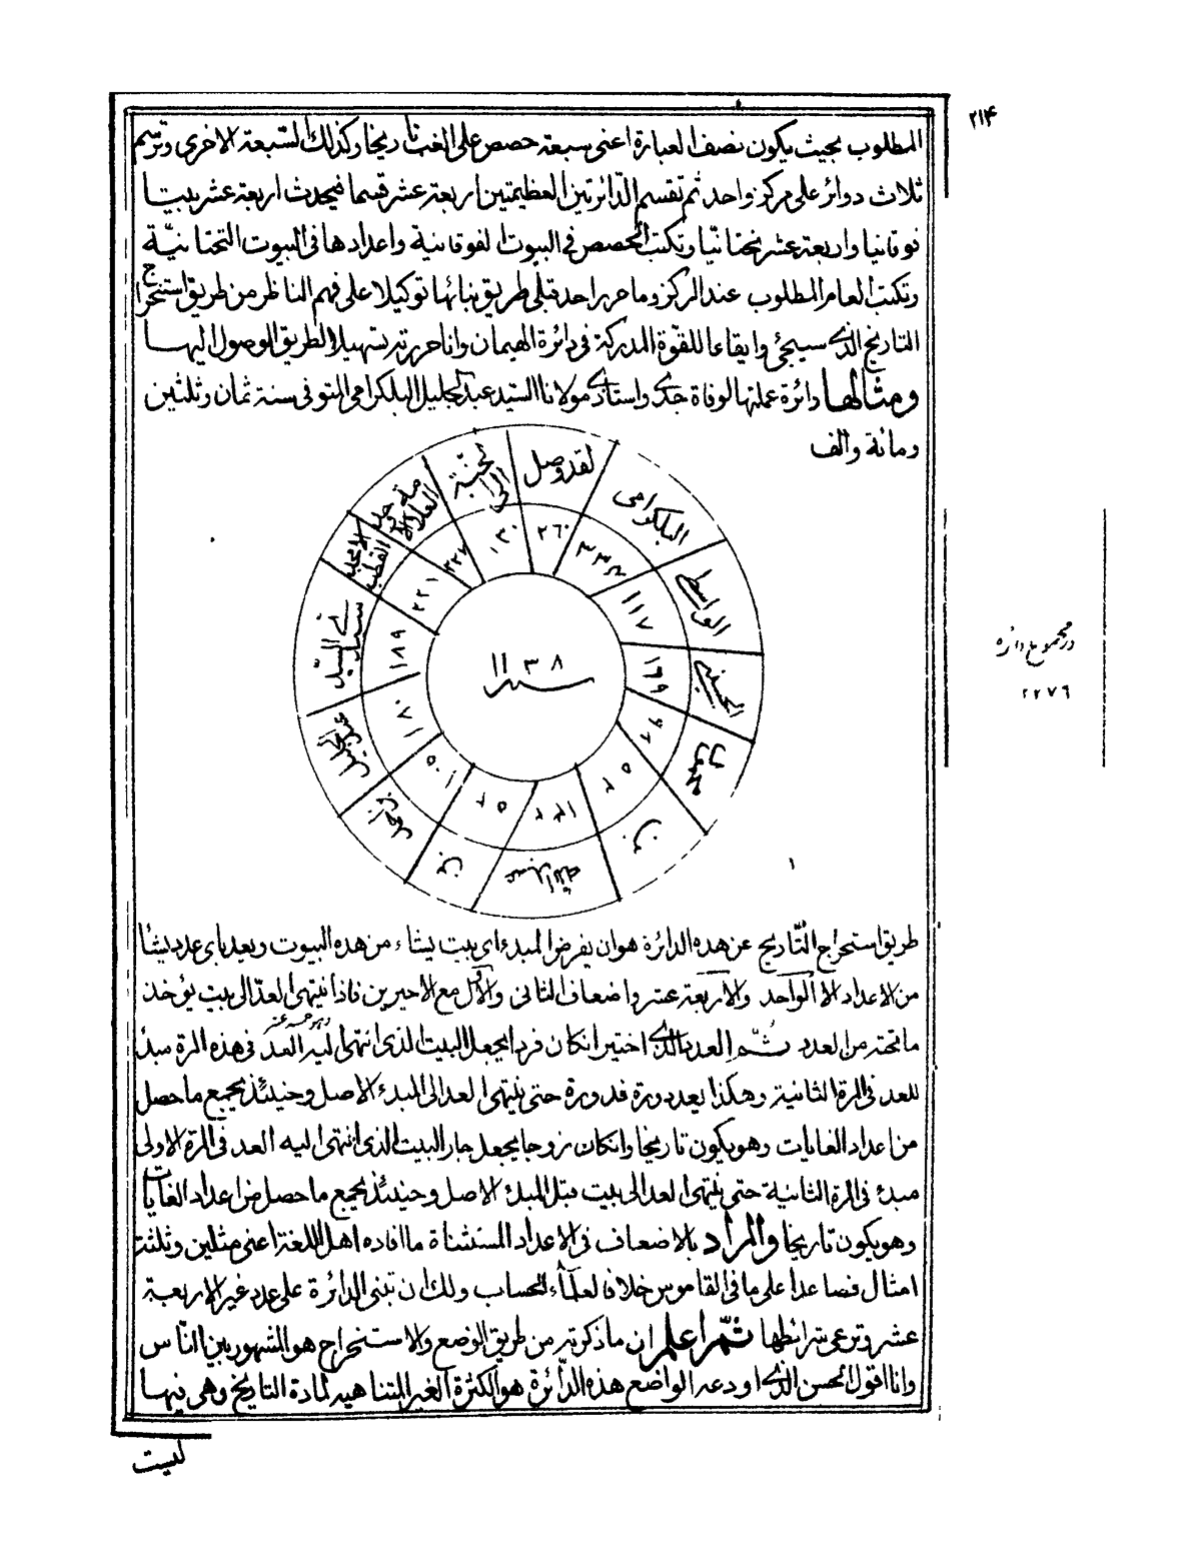 ٢١۴
المطلوب بحيث يكون نصف العبارة اعنى سبعة حصص على الغب تاريخا وكذلك السبعة الاخرى وترسم
ثلاث دوائر على مركز واحد ثم تقسم الدّائرتين العظيمتين اربعة عشر قسما فيحدث اربعة عشر بيتا
فوقانيا واربعة عشر تحتانيّا وتكتب الحصص فى البيوت الفوقانية واعدادها فى البيوت التحتانيّة
وتكتب العام المطلوب عند المركز وما حرر احد قبلى طريق بنائها توكيلا على فهم الناظر من طريق استخراج
التاريخ الذى سيجئ وايقاعا للقوة المدركة فى دائرة الهيمان وانا حررته تسهيلا لطريق الوصول اليها
ومثالها دائرة عملتها لوفاة جدى واستاذى مولانا السيد عبد الجليل البلكرامى المتوفى سنة ثمان وثلثين
ومائة والف
لقد وصل
٢٦٠
البلكرامى
٣٣٣
الواسطى
١١٧
الحسينى
١٦٩
بن
٥٢
عبد الله
١٤٢
بن
٥٢
١٠٥
عبد الجليل
١٨٠
سيد
١٨٩
القطب الامجد
٢٢١
الجنّة
الى
١٣٠
١١٣٨
سنه
در مجموع دائره
٢٢٧٦
طريق استخراج التّاريخ عن هذه الدائرة هو ان يفرض المبدء اى بيت يشاء من هذه البيوت ويعد باى عدد يشا
من الاعداد الا الواحد والاربعة عشر واضعاف الثانى والاول مع الاخيرين فاذا انتهى العدّ الى بيت يؤخذ
ما تحته من العدد ثُمّ العدد الذى اختير ان كان فردا يجعل البيت الذى انتهى اليه العدّ فى هذه المرة مبدأ
للعد فى المرة الثانية وهكذا يعد دورة فدورة حتى ينتهى العد الى المبدء الاصل وحينئذ يجمع ما حصل
من اعداد الغايات وهو يكون تاريخا وان كان زوجا يجعل جار البيت الذى انتهى اليه العد فى المرة الاولى
مبدء فى المرة الثانية حتى ينتهى العد الى بيت قبل المبدء الاصل وحينئذ يجمع ما حصل من اعداد الغايات
وهو يكون تاريخا والمراد بالاضعاف فى الاعداد المستثناة ما افاده اهل اللغة اعنى مثلين وثلثة
امثال فصاعدا على ما فى القاموس خلافا لعلماء الحساب ولك ان تبنى الدائرة على عدد غير الاربعة
عشر وترعى شرائطها ثمّ اعلم ان ما ذكرته من طريق الوضع والاستخراج هو المشهور بين النّاس
وانا اقول الحسن الذى اودعه الواضع هذه الدّائرة هو الكثرة الغير المتناهية لمادة التاريخ وهى فيها
ليست